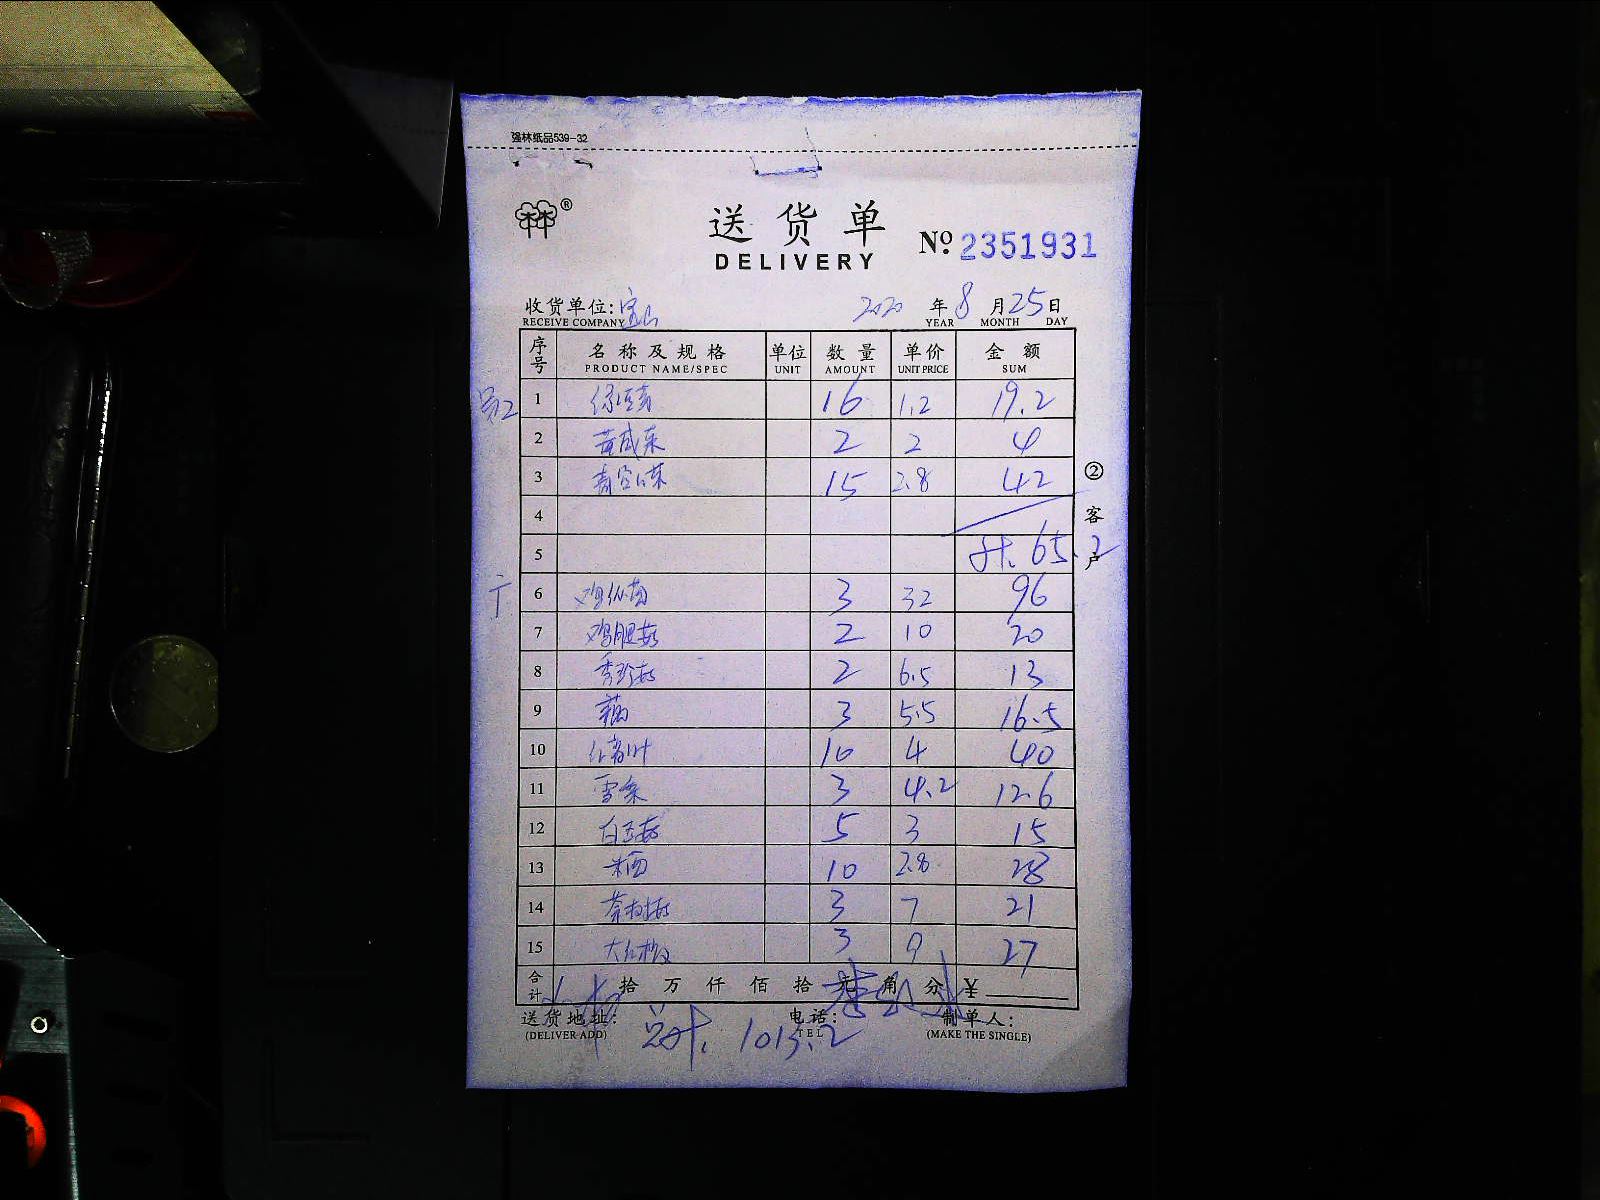 强林纸品539-32
林®
送货单
DELIVERY
№ 2351931
收货单位: 宝山 2020 年 8 月 25 日
RECEIVE COMPANY YEAR MONTH DAY
序号 名称及规格 单位 数量 单价 金额
PRODUCT NAME/SPEC UNIT AMOUNT UNIT PRICE SUM
1 绿豆芽 16 1.2 19.2
2 黄咸菜 2 2 4
3 15 2.8 42
4
5 计. 65.2
6 鸡枞菌 3 32 96
7 鸡腿菇 2 10 20
8 秀珍菇 2 6.5 13
9 藕 3 5.5 16.5
10 10 4 40
11 雪菜 3 4.2 12.6
12 白玉菇 5 3 15
13 米面 10 2.8 28
14 茶树菇 3 7 21
15 大红椒 3 9 27
② 客户
合计 拾 万 仟 佰 拾 元 角 分 ¥
送货地址: 电话: 制单人:
(DELIVER ADD) TEL (MAKE THE SINGLE)
总计. 1013.2